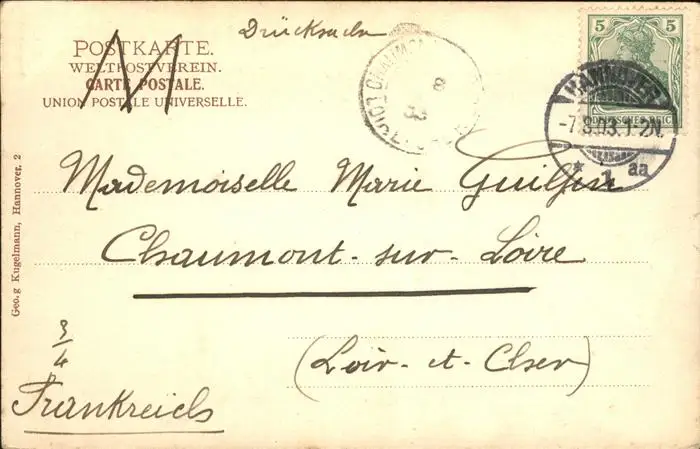 Drücksache
POSTKARTE.
WELTPOSTVEREIN.
CARTE POSTALE.
UNION POSTALE UNIVERSELLE.
5 5
DEUTSCHES REICH
HANNOVER
-7.8.03.1-2N.
* 1 aa
8
03
Mademoiselle Marie
Chaumont-sur-Loire
(Loir-et-Cher)
3/4
Frankreich
Geo.g Kugelmann, Hannover. 2